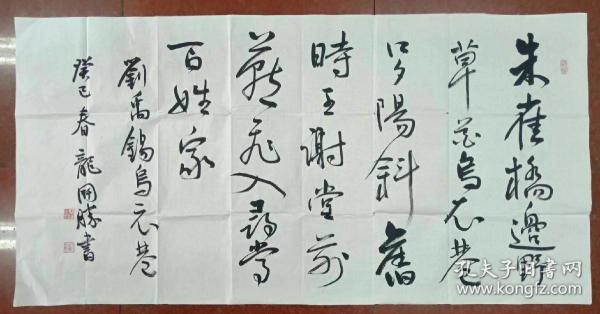 朱雀橋邊野
草花烏衣巷
口夕陽斜舊
時王謝堂前
燕飛入尋常
百姓家
劉禹錫烏衣巷
癸巳春龍開勝書
孔夫子旧书网
www.kongfz.com